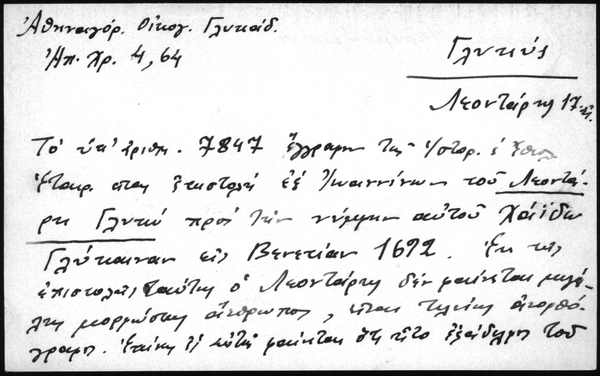 Ἀθηναγόρ. Οἰκογ. Γλυκάδ.
Ἠπ. Χρ. 4, 64
Γλυκύς
Λεοντάρης 17
Τὸ ὑπ' ἀριθμ. 7847 ἔγγραφον τῆς Ἱστορ. ἐ Ἐθνολ
Ἑταιρ. εἶναι ἐπιστολή ἐξ Ἰωαννίνων τοῦ Λεοντά-
ρη Γλυκύ πρός τὴν νύμφην αὐτοῦ Χάϊδω
Γλύκαιναν εἰς Βενετίαν 1692. Ἐκ τῆς
ἐπιστολῆς ταύτης ὁ Λεοντάρης δὲν φαίνεται μεγά-
λης μορφώσεως ἄνθρωπος, εἶναι τελείως ἀνορθό-
γραφος. Ἐπίσης ἐξ αὐτῆς φαίνεται ὅτι ἦτο ἐξάδελφος τοῦ